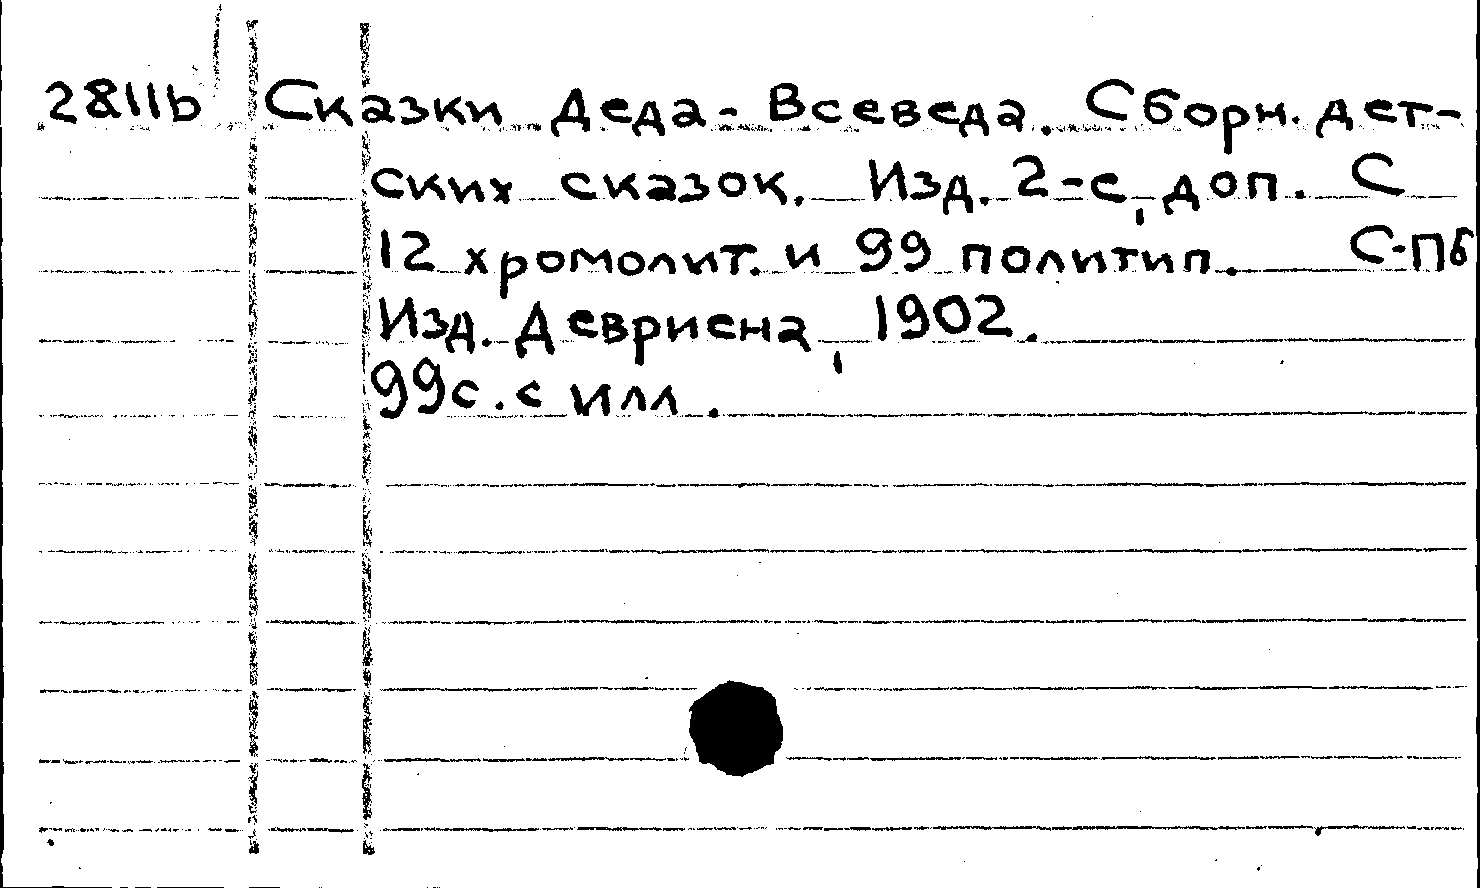 2811b Сказки Деда-Всеведа. Сборн. дет-
ских сказок. Изд. 2-е, доп. С
12 хромолит. и 99 политип. С-Пб
Изд. Девриена, 1902.
99с. с илл.